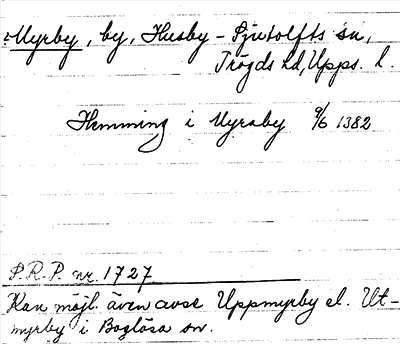 Myrby, by, Husby-Sjutolfts sn,
Trögds hd, Upps. l.
Hemming i Myraby 9/6 1382
S.R.P. nr. 1727
Kan möjl. även avse Uppmyrby el. Ut-
myrby i Boglösa sn.